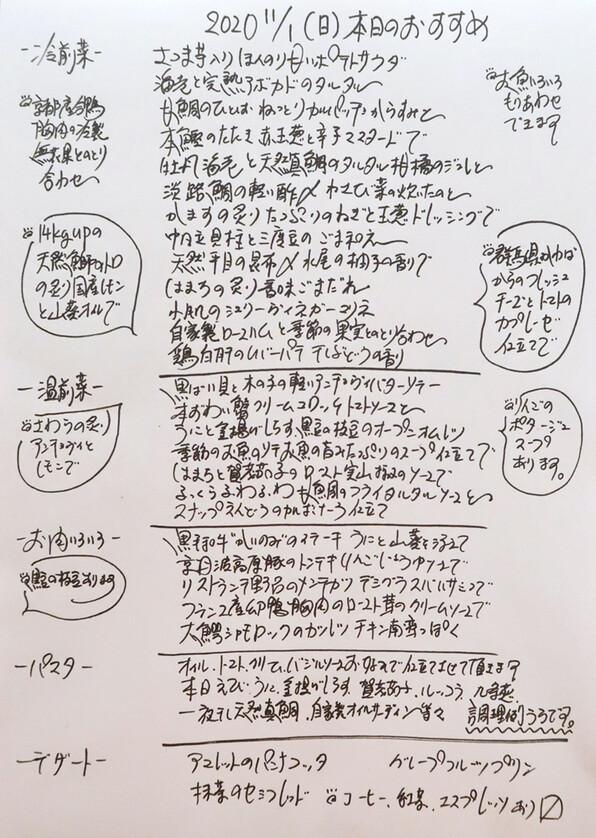 2020 11/1 (日) 本日のおすすめ
-冷前菜-
さつま芋入りほんのり甘いポテトサラダ
海老と完熟アボカドのタルタル
甘鯛のひとは ねっとりカルパッチョ からすみと
本鰹のたたき 赤玉葱と辛子マスタードで
牡丹海老と天然真鯛のタルタル 柑橘のジュレと
淡路鯛の軽い酢〆 わさび菜の炊いたのと
かますの炙り たっぷりのねぎと玉葱ドレッシングで
帆立貝柱と三度豆のごま和え
天然平目の昆布〆 水尾の柚子の香りで
はまちの炙り 香味ごまだれ
小肌のシェリーヴィネガーマリネ
自家製ロースハムと季節の果実とのとり合わせ
鶏白肝のレバーパテ 干しぶどうの香り
京都産合鴨
胸肉の冷製
無花果とのとり
合わせ
14kgupの
天然鮪トロ
の炙り 国産レモン
と山葵オイルで
お魚いろいろ
もりあわせ
できます
群馬県
からのフレッシュ
チーズとトマトの
カプレーゼ
仕立てで
-温前菜-
黒ばい貝と木の子の軽いアンチョヴィバターソテー
本ずわい蟹クリームコロッケ トマトソースと
うにと釜揚げしらす、黒豆の枝豆のオープンオムレツ
季節のお魚のソテー お魚の旨みたっぷりのスープ仕立てで
はまちと賀茂茄子のロースト 実山椒のソースで
ふっくらふわふわ 甘鯛のフライ タルタルソースと
スナップえんどうのカルボナーラ仕立て
さわらの炙り
アンチョヴィと
レモンで
りんごの
ポタージュ
スープ
あります。
-お肉いろいろ-
黒毛和牛"かいのみ"のステーキ うにと山葵を添えて
京丹波高原豚のトンテキ りんごじょうゆソースで
リストランテ野呂のメンチカツ デミグラスバルサミコで
フランス産 鴨胸肉のロースト 茸のクリームソースで
大鰐シャモロックのカツレツ チキン南蛮っぽく
黒豆の枝豆あります
-パスタ-
オイル、トマト、クリーム、バジルソース お好みで仕立てさせて頂きます
本日 えび、うに、釜揚げしらす、賀茂茄子、ルッコラ、九条葱、
一夜干し天然真鯛、自家製オイルサーディン 皆々 調理的うろです。
-デザート-
アマレットのパンナコッタ グレープフルーツプリン
抹茶のセミフレッド コーヒー、紅茶、エスプレッソあり〼